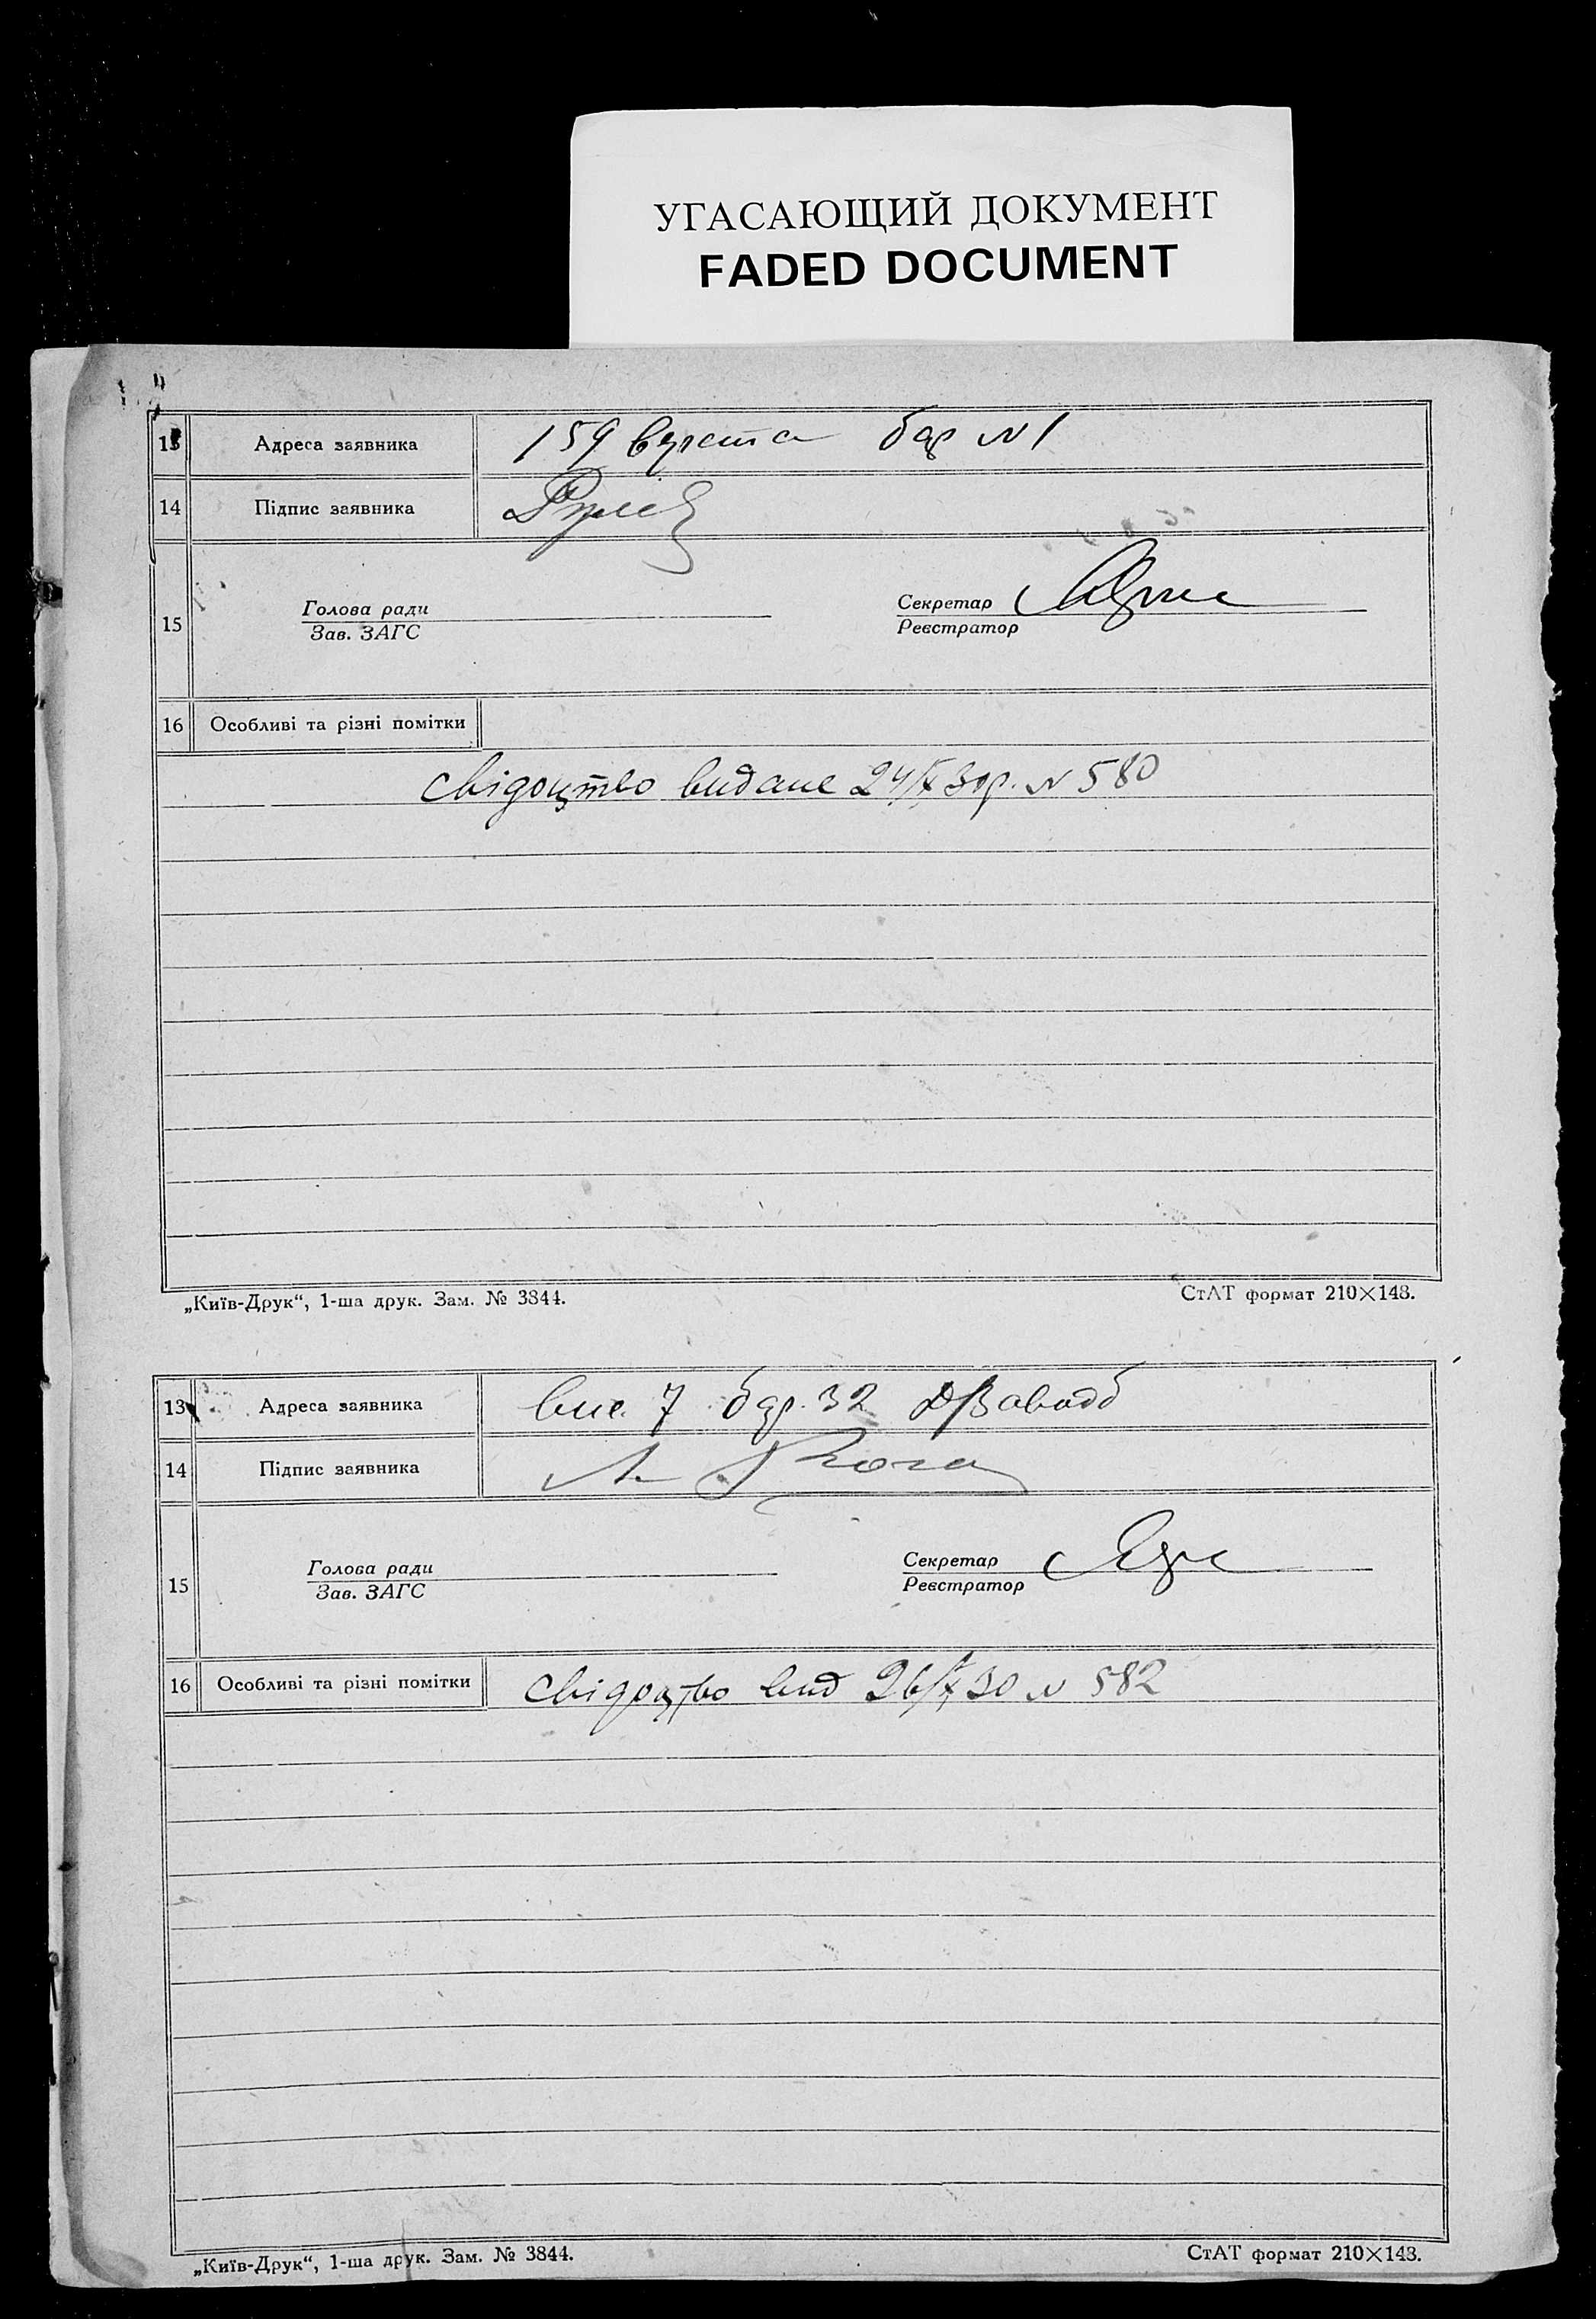 УГАСАЮЩИЙ ДОКУМЕНТ
FADED DOCUMENT
13 Адреса заявника 159 верста бар N 1
14 Підпис заявника
15 Голова ради Секретар
Зав. ЗАГС Реєстратор
16 Особливі та різні помітки
свідоцтво видане 24/X 30р. N 580
„Київ-Друк“, 1-ша друк. Зам. № 3844. СтАТ формат 210×148.
13 Адреса заявника 7 буд. 32
14 Підпис заявника
15 Голова ради Секретар
Зав. ЗАГС Реєстратор
16 Особливі та різні помітки свідоцтво вид 26/X 30 N 582
„Київ-Друк“, 1-ша друк. Зам. № 3844. СтАТ формат 210×148.